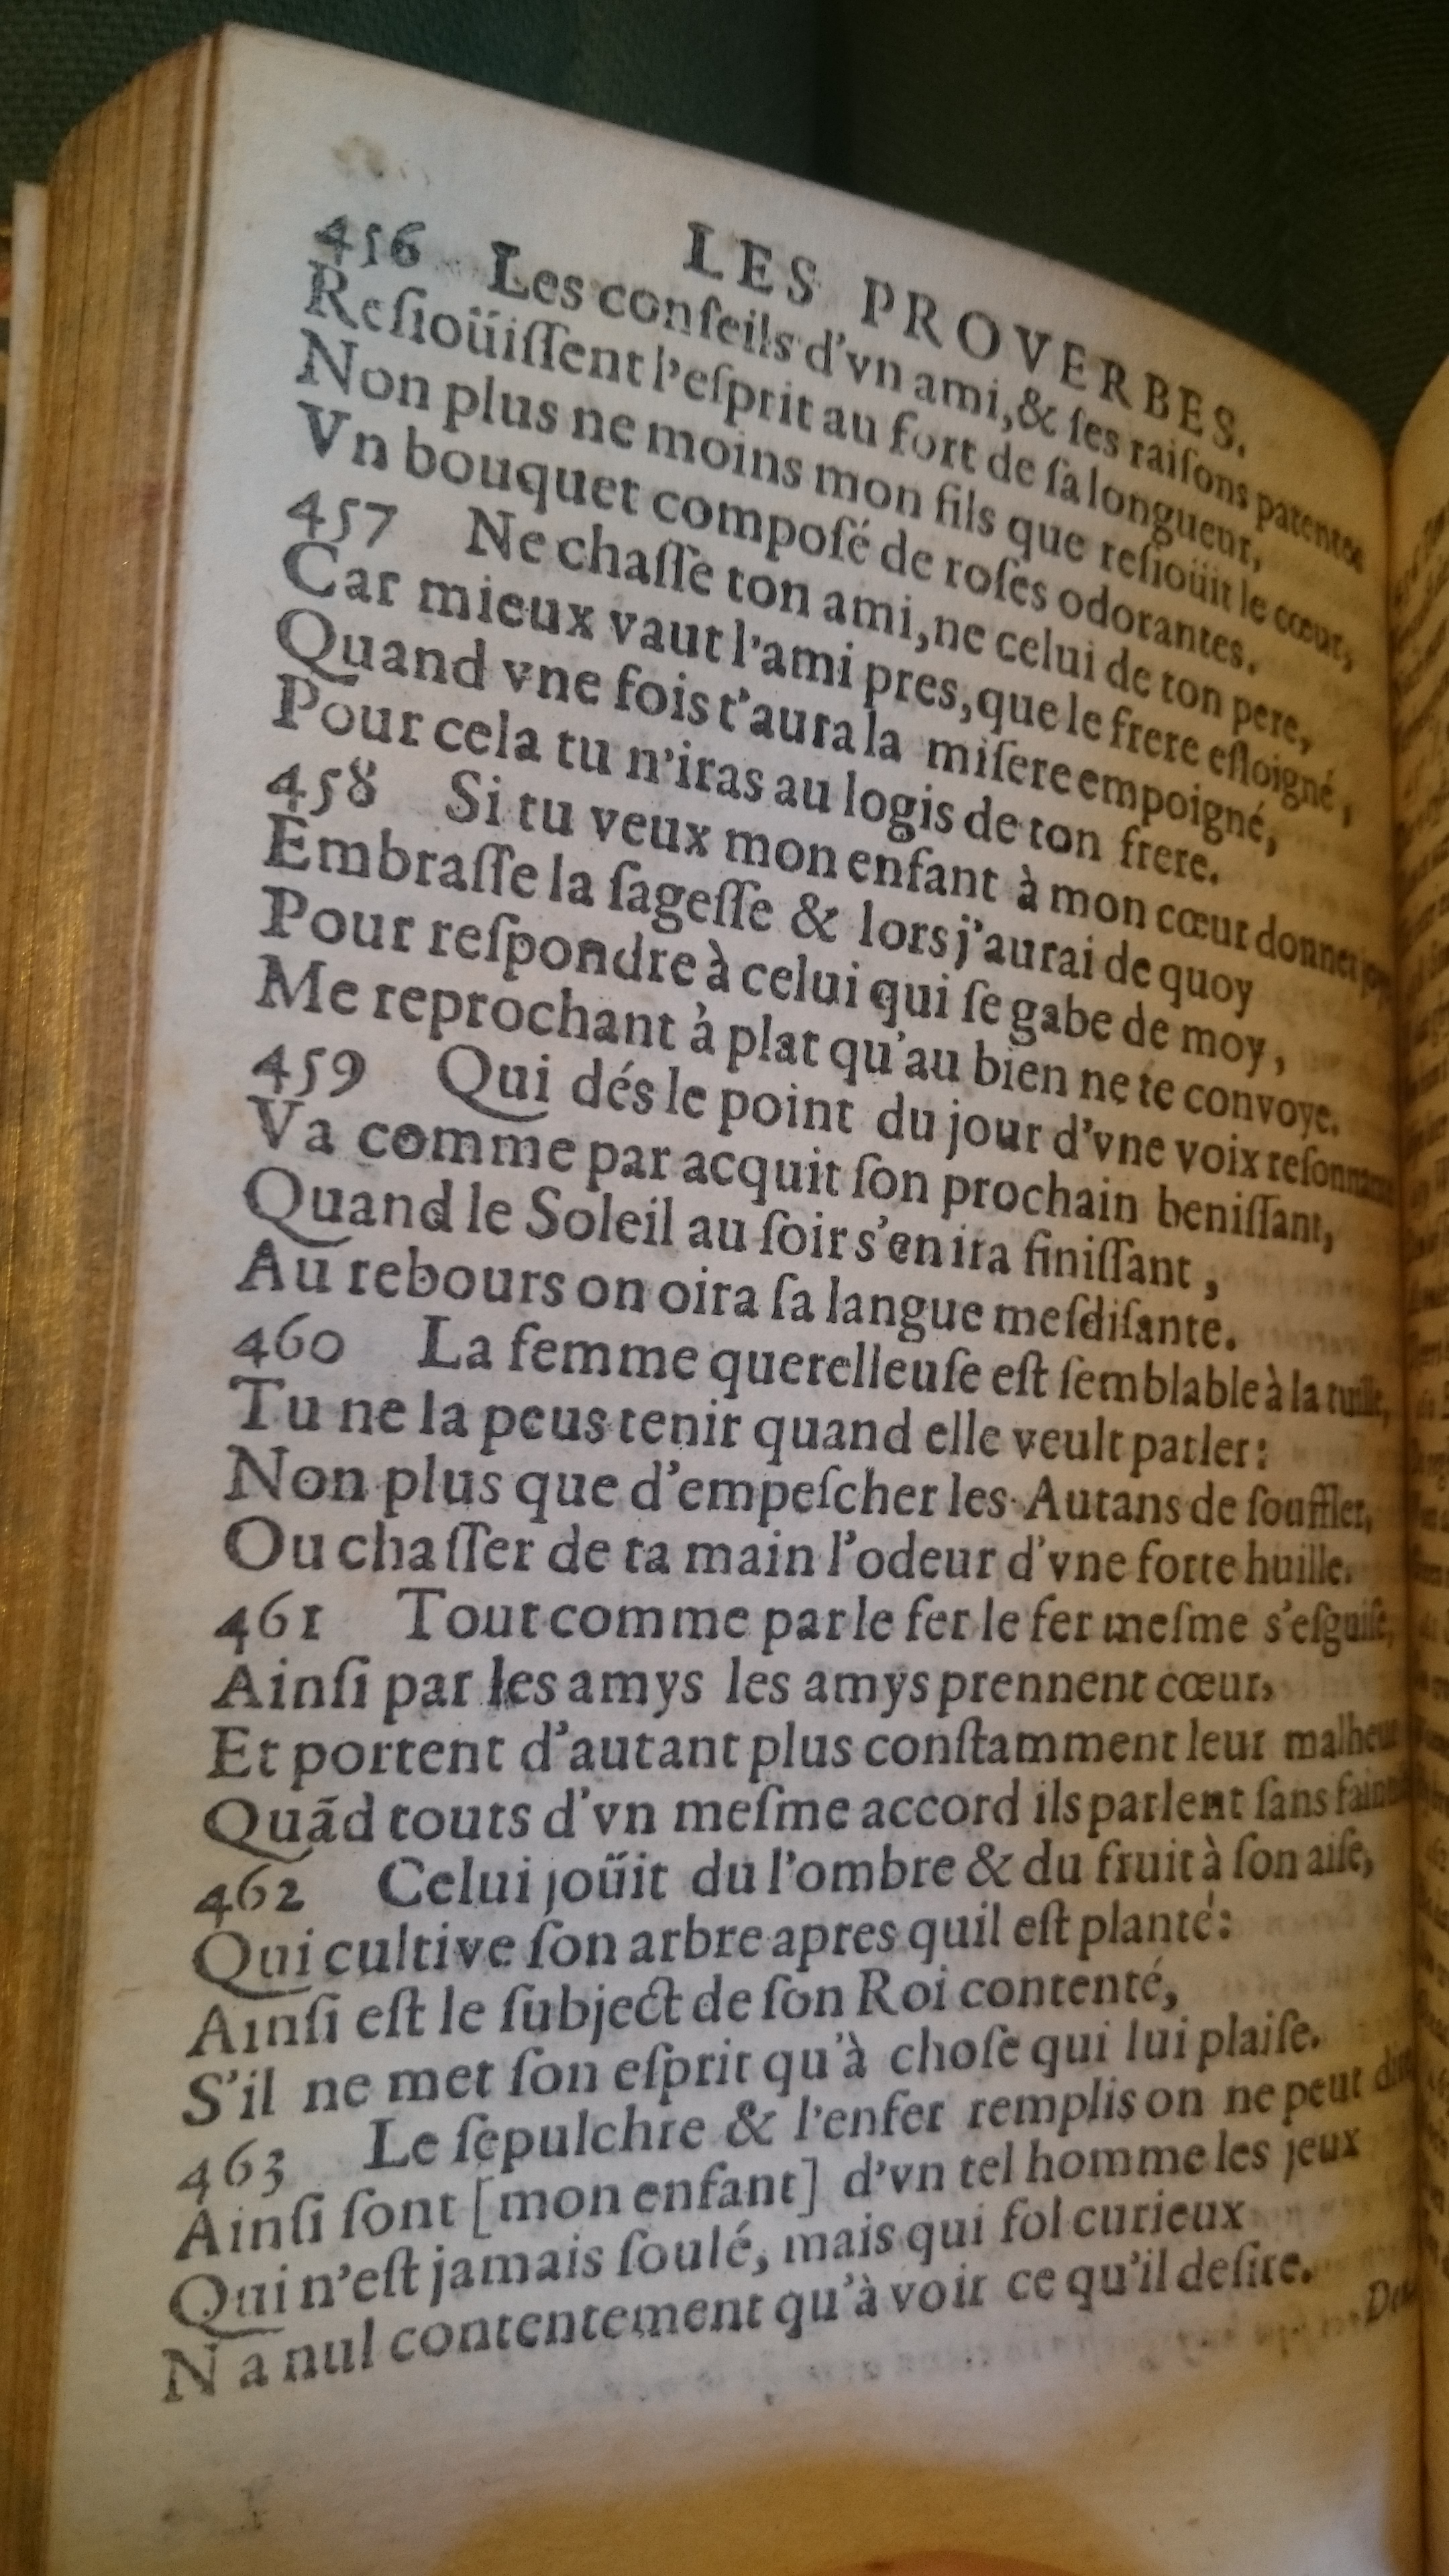 LES PROVERBES.
456 Les conſeils d'vn ami, & ſes raiſons patentes
Reſioüiſſent l'eſprit au fort de ſa longueur,
Non plus ne moins mon fils que reſioüit le cœur,
Vn bouquet compoſé de roſes odorantes.
457 Ne chaſſe ton ami, ne celui de ton pere,
Car mieux vaut l'ami pres, que le frere eſloigné,
Quand vne fois t'aura la miſere empoigné,
Pour cela tu n'iras au logis de ton frere.
458 Si tu veux mon enfant à mon cœur donner
Embraſſe la ſageſſe & lors j'aurai de quoy
Pour reſpondre à celui qui ſe gabe de moy,
Me reprochant à plat qu'au bien ne te convoye.
459 Qui dés le point du jour d'vne voix
Va comme par acquit ſon prochain beniſſant,
Quand le Soleil au ſoir s'en ira finiſſant,
Au rebours on oira ſa langue meſdiſante.
460 La femme querelleuſe eſt ſemblable à la tuille,
Tu ne la peus tenir quand elle veult parler:
Non plus que d'empeſcher les Autans de ſouffler,
Ou chaſſer de ta main l'odeur d'vne forte huille.
461 Tout comme par le fer le fer meſme s'eſguiſe,
Ainſi par les amys les amys prennent cœur,
Et portent d'autant plus conſtamment leur
Quãd touts d'vn meſme accord ils parlent ſans
462 Celui joüit du l'ombre & du fruit à ſon aiſe,
Qui cultive ſon arbre apres quil eſt planté:
Ainſi eſt le ſubject de ſon Roi contenté,
S'il ne met ſon eſprit qu'à choſe qui lui plaiſe.
463 Le ſepulchre & l'enfer remplis on ne peut
Ainſi ſont [mon enfant] d'vn tel homme les jeux
Qui n'eſt jamais ſoulé, mais qui fol curieux
N a nul contentement qu'à voir ce qu'il deſire.